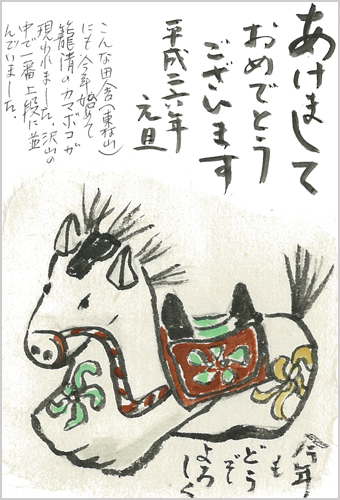 あけまして
おめでとう
ございます
平成二六年
元旦
こんな田舎(東松山)
にも今年始めて
籠清のカマボコが
現われました、沢山の
中で一番上段に並
んでいました。
今年
も
どうぞ
よろしく